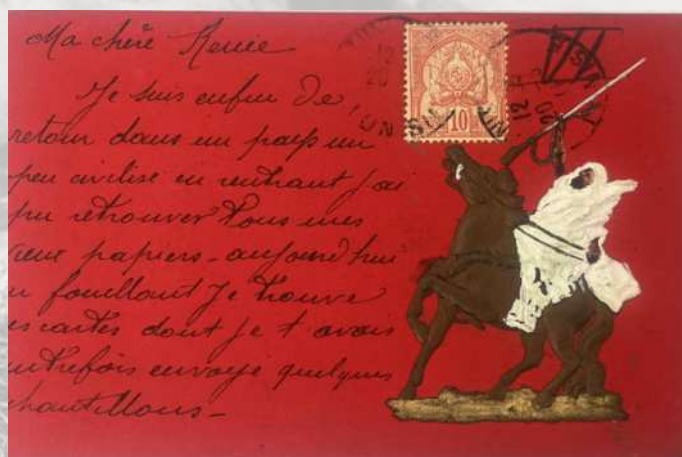 Ma chère Renée
Je suis enfin de
retour dans un pays un
peu civilisé en rentrant j'ai
pu retrouver tous mes
vieux papiers - aujourd'hui
en fouillant je trouve
es cartes dont je t avais
utrefois envoyé quelques
chantillons -
10
TUNIS